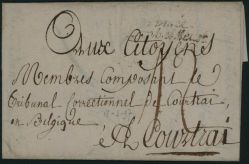 Aux Citoyens
Membres Composant le
Tribunal Correctionnel de Courtrai,
en Belgique
A Courtrai